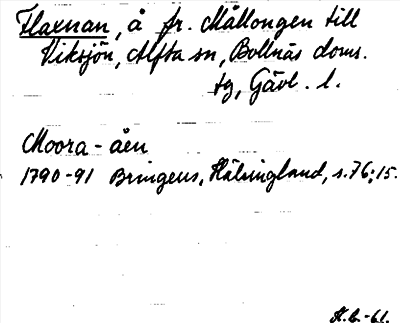 Flaxnan, å fr. Mållongen till
Viksjön, Alfta sn, Bollnäs doms.
tg, Gävl. l.
Moora-åen
1790-91 Bringeus, Hälsingland, s. 76; 15.